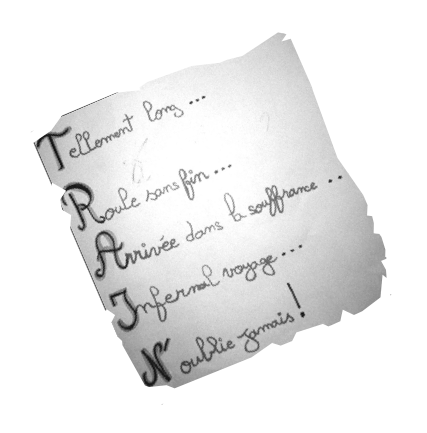 Tellement long...
Roule sans fin...
Arrivée dans la souffrance...
Infernal voyage...
N'oublie jamais!